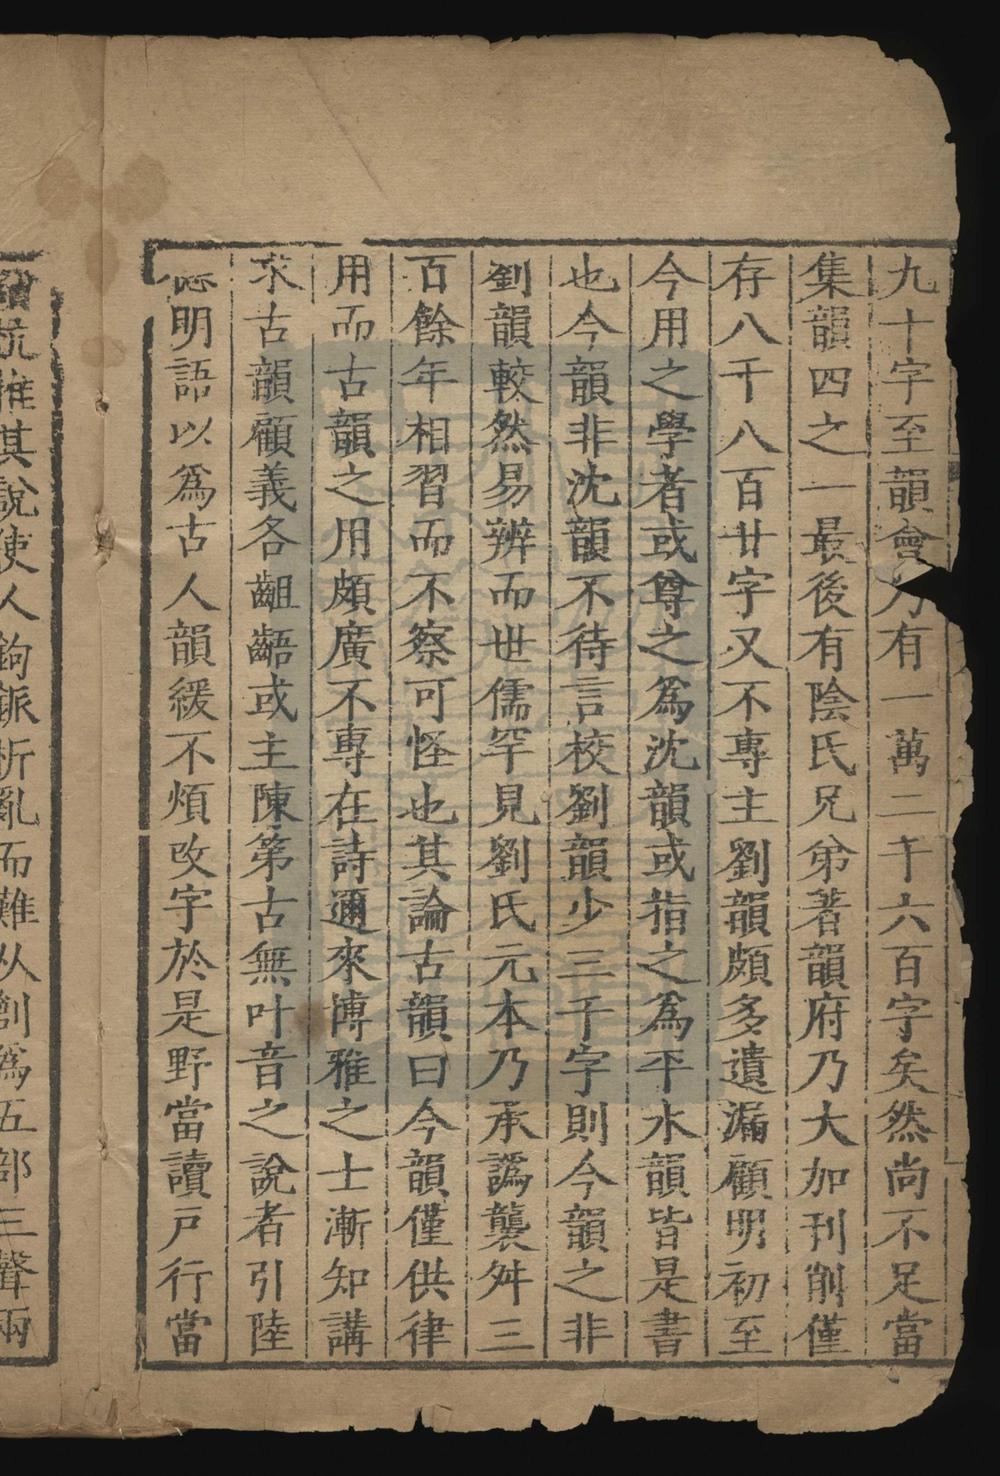 九十字至韻會乃有一萬二千六百字矣然尚不足當
集韻四之一最後有陰氏兄弟著韻府乃大加刊削僅
存八千八百廿字又不專主劉韻頗多遺漏顧明初至
今用之學者或尊之為沈韻或指之為平水韻皆是書
也今韻非沈韻不待言校劉韻少三千字則今韻之非
劉韻較然易辨而世儒罕見劉氏元本乃承譌襲舛三
百餘年相習而不察可怪也其論古韻曰今韻僅供律
用而古韻之用頗廣不專在詩邇來博雅之士漸知講
求古韻顧義各齟齬或主陳第古無叶音之說者引陸
德明語以為古人韻緩不煩改字於是野當讀戶行當
讀杭推其說使人鉤鈲析亂而難从創為五部三聲兩